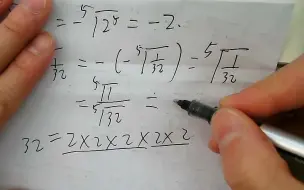 = -⁵√2⁵ = -2.
√1/32 = -(-⁵√1/32) = ⁵√1/32
= ⁵√1/⁵√32 =
32 = 2×2×2×2×2